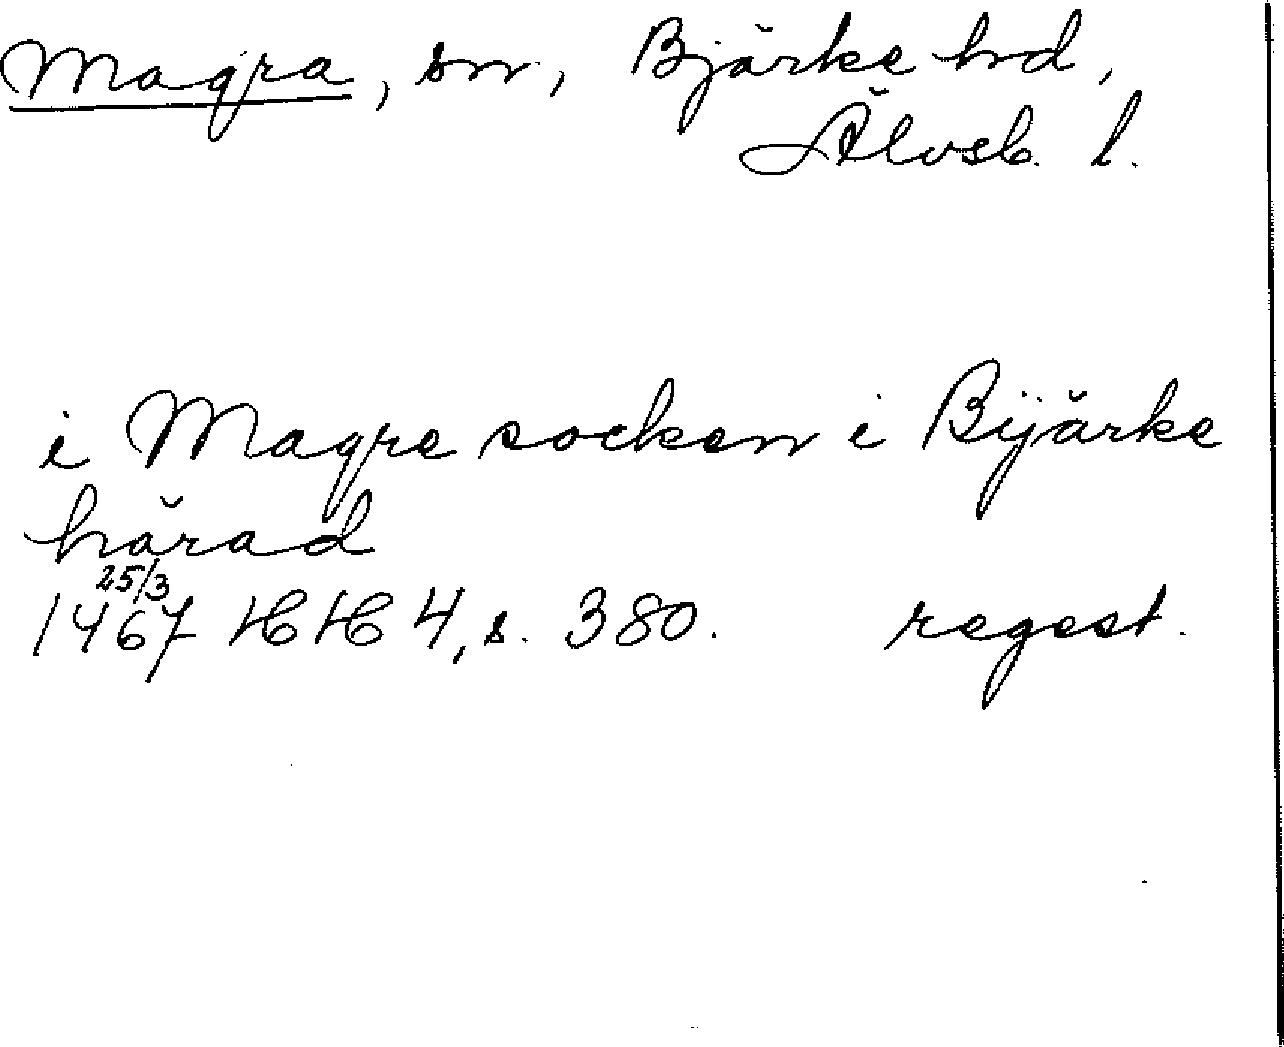 Magra, sn., Bjärke hd,
Älvsb. l.
i Magre socken i Bijärke
härad
25/3
1467 HH 4, s. 380. regest.